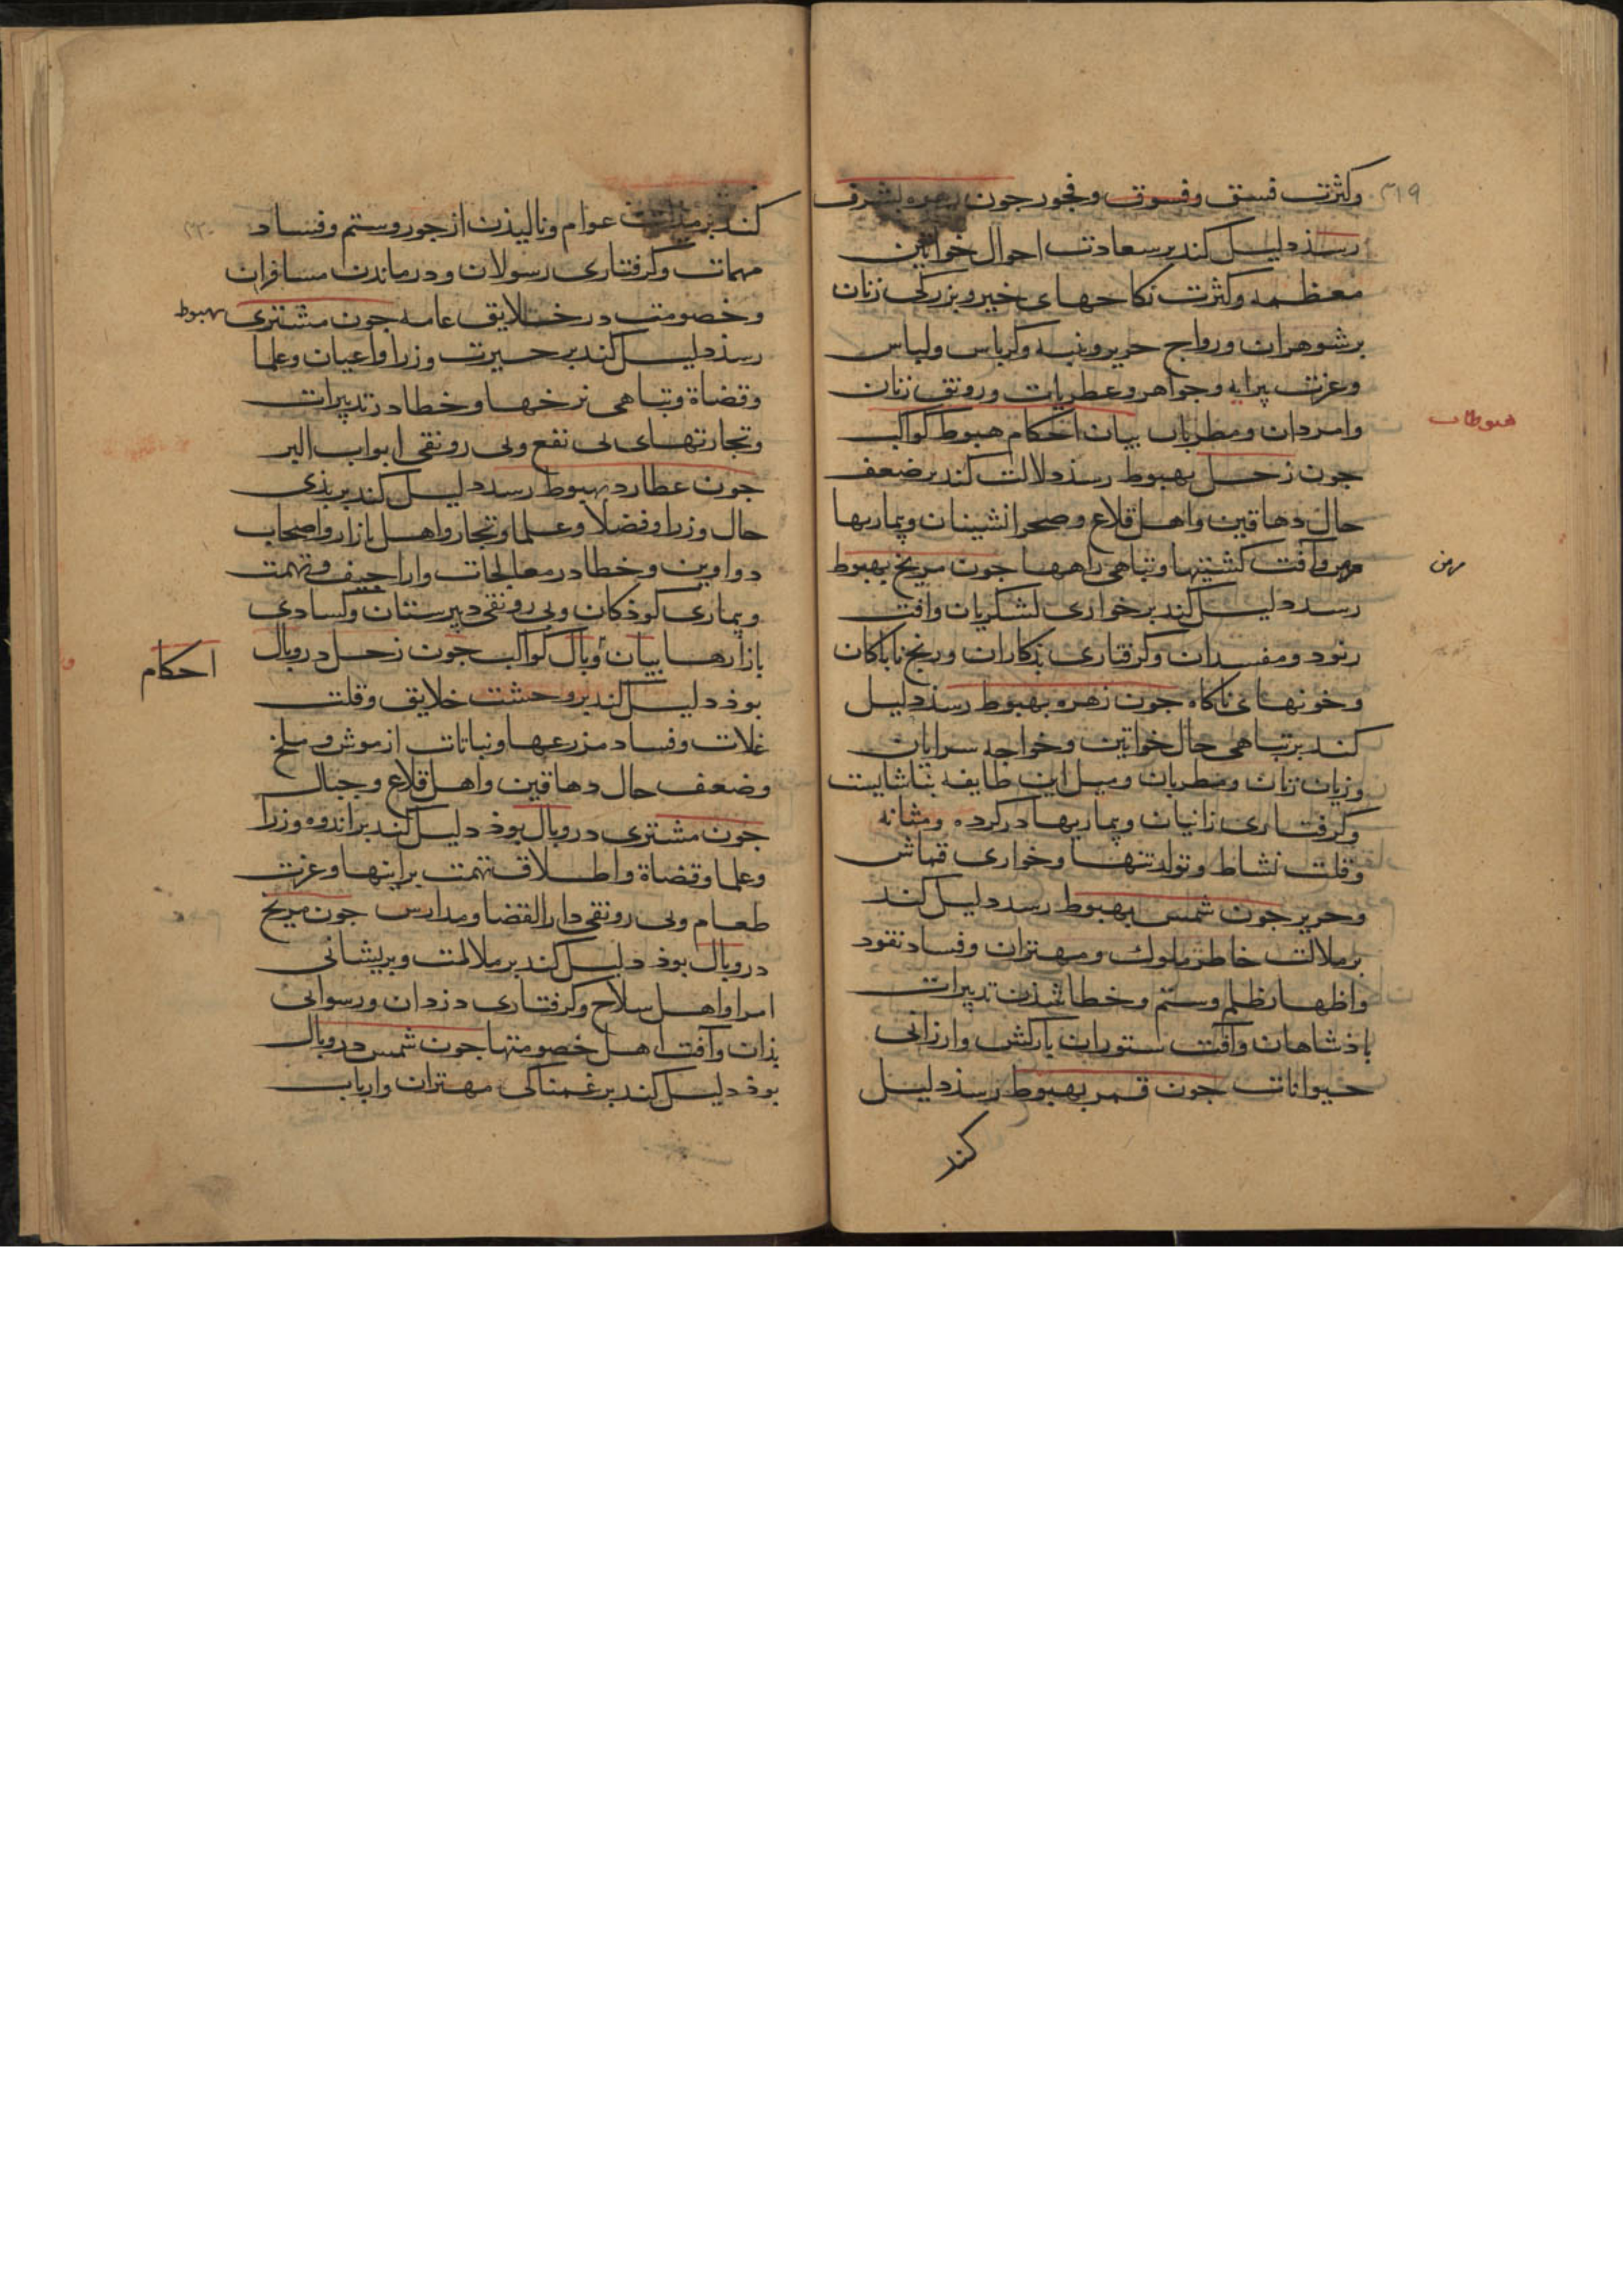 ۳۱۹
وکثرت فسق وفسوق وفجور جون زهره بشرف
رسذ دلیل کند بر سعادت احوال خواتین
معظمه وکثرت نکاحهای خیر وبزرکی زنان
بر شوهران ورواج حریر وپنبه وکرباس ولباس
وعزت پیرایه وجواهر وعطریات ورونق زنان
وامردان ومطربان بیان احکام هبوط کواکب
هبوطات
جون زحل بهبوط رسذ دلالت کند بر ضعف
حال دهاقین واهل قلاع وصحرانشینان وبیماریها
مزمن وآفت کشتیها وتباهی راهها جون مریخ بهبوط
رسد دلیل کند بر خواری لشکریان وافت
رنود ومفسدان وکرفتاری بذکاران ورنج ناباکان
وخونهای ناکاه جون زهره بهبوط رسذ دلیل
کند بر تباهی حال خواتین وخواجه سرایان
وزیان زنان ومطربان ومیل این طایفه بناشایست
وکرفتاری زانیان وبیماریها در کرده ومثانه
وقلت نشاط وتولد تنها وخواری قماش
وحریر جون شمس بهبوط رسد دلیل کند
بر ملالت خاطر ملوک ومهتران وفساد نقود
واظهار ظلم وستم وخطا شذن تدبیرات
باذشاهان وآفت ستوران بارکش وارزانی
حیوانات جون قمر بهبوط رسذ دلیل
کند
کند بر عوام ونالیذن از جور وستم وفساد
مهمات وکرفتاری رسولان ودرماندن مسافران
وخصومت در خلایق عامه جون مشتری بهبوط
رسذ دلیل کند بر حیرت وزرا واعیان وعلما
وقضاة وتباهی نرخها وخطا در تدبیرات
وتجارتهای بی نفع وبی رونقی ابواب البر
جون عطارد بهبوط رسد دلیل کند بر بذی
حال وزرا وفضلا وعلما وتجار واهل بازار واصحاب
دواوین وخطا در معالجات واراجیف وتهمت
وبیماری کوذکان وبی رونقی دبیرستان وکسادی
بازارها بیان وبال کواکب جون زحل در وبال
احکام
بوذ دلیل کند بر وحشت خلایق وقلت
غلات وفساد مزرعها ونباتات از موش وملخ
وضعف حال دهاقین واهل قلاع وجبال
جون مشتری در وبال بوذ دلیل کند بر اندوه وزرا
وعلما وقضاة واطلاق تهمت بر اینها وعزت
طعام وبی رونقی دار القضا ومدارس جون مریخ
در وبال بوذ دلیل کند بر ملالت وپریشانی
امرا واهل سلاح وکرفتاری دزدان ورسوایی
بذان وآفت اهل خصومتها جون شمس در وبال
بوذ دلیل کند بر غمناکی مهتران وارباب